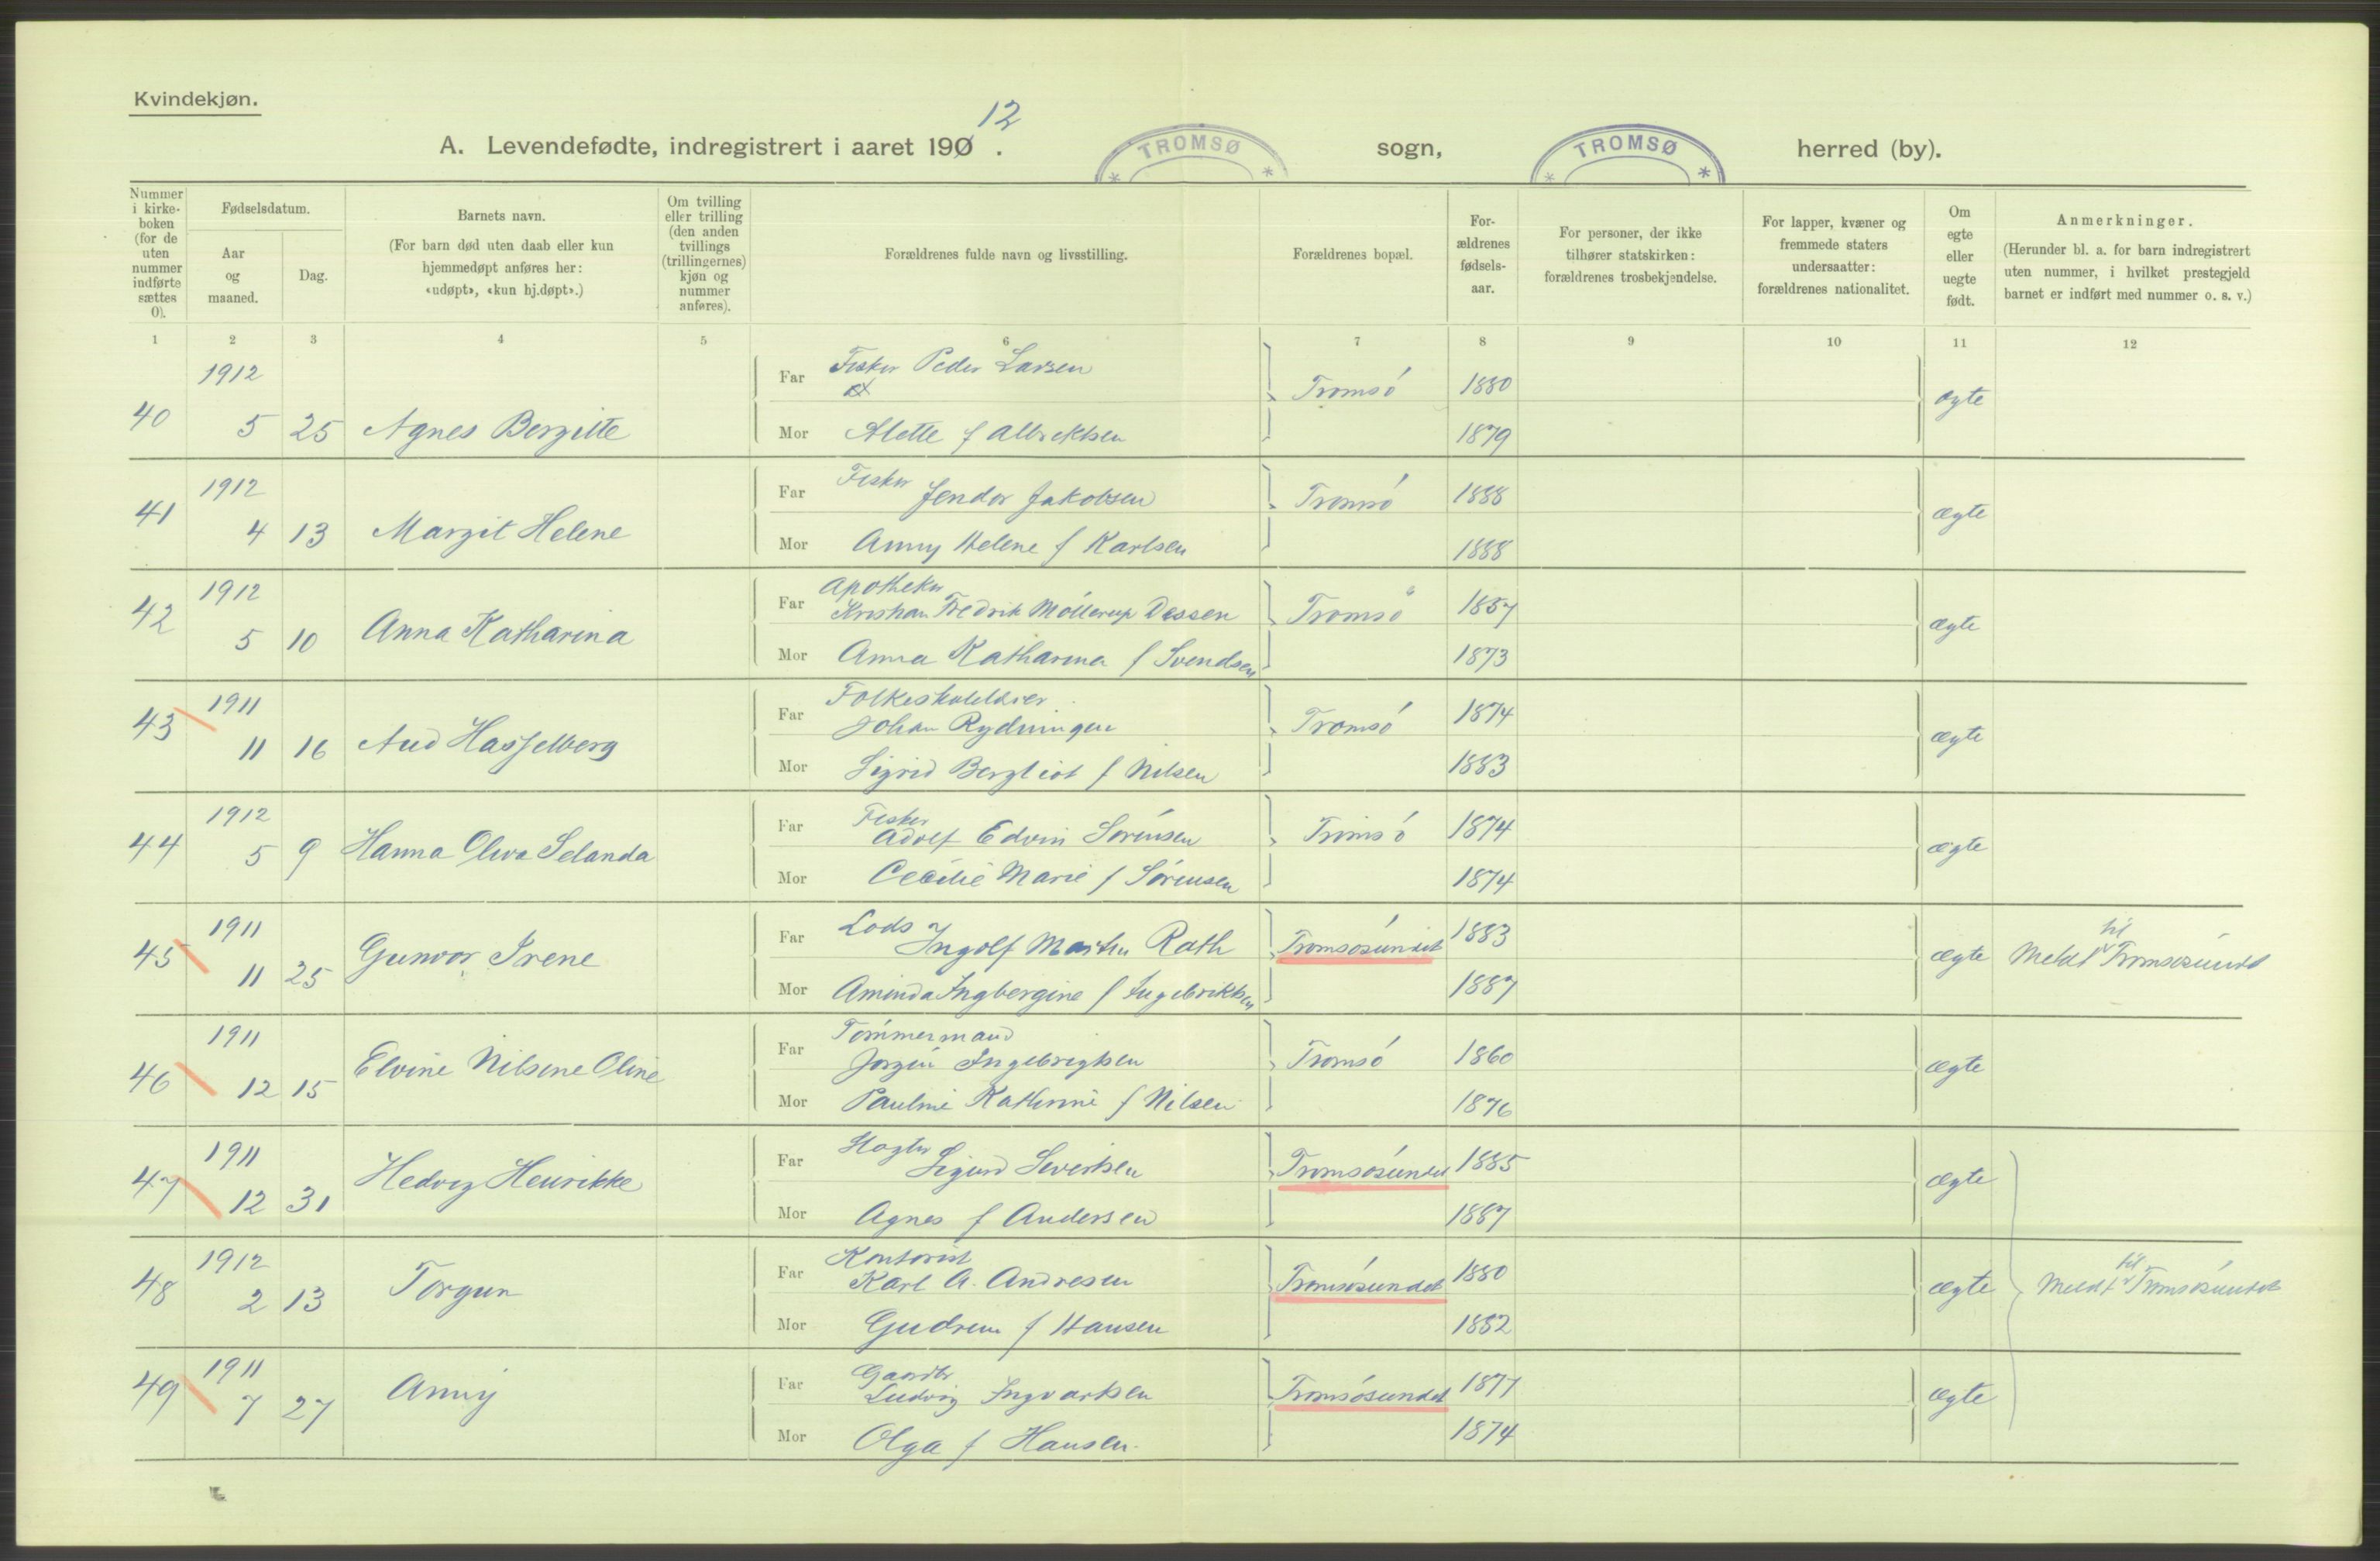 Kvindekjøn.
A. Levendefødte, indregistrert i aaret 190 12.
TROMSØ
sogn,
TROMSØ
herred (by).
Nummer i kirke-boken (for de uten nummer indførte sættes 0).
Fødselsdatum.
Aar og maaned.
Dag.
Barnets navn.
(For barn død uten daab eller kun hjemmedøpt anføres her: «udøpt», «kun hj.døpt».)
Om tvilling eller trilling (den anden tvillings (trillingernes) kjøn og nummer anføres).
Forældrenes fulde navn og livsstilling.
Forældrenes bopæl.
For-ældrenes fødsels-aar.
For personer, der ikke tilhører statskirken: forældrenes trosbekjendelse.
For lapper, kvæner og fremmede staters undersaatter: forældrenes nationalitet.
Om egte eller uegte født.
Anmerkninger.
(Herunder bl. a. for barn indregistrert uten nummer, i hvilket prestegjeld barnet er indført med nummer o. s. v.)
1 2 3 4 5 6 7 8 9 10 11 12
40 1912 5 25 Agnes Bergitte
Far Fisker Peder Larsen Tromsó 1880 ægte
Mor Alette f Albrektsen 1879
41 1912 4 13 Margit Helene
Far Fisker Jendor Jakobsen Tromsó 1888 ægte
Mor Anny Helene f Karlsen 1888
42 1912 5 10 Anna Katharina
Far Apotheker Kristian Fredrik Móllerup Dessen Tromsó 1857 ægte
Mor Anna Katharina f Svendsen 1873
43 1911 11 16 Aud Hasselberg
Far Folkeskolelærer Johan Rydningen Tromsó 1874 ægte
Mor Sigrid Bergliot f Nilsen 1883
44 1912 5 9 Hanna Oliva Selanda
Far Fisker Adolf Edvin Sórensen Tromsó 1874 ægte
Mor Cecilie Marie f Sórensen 1874
45 1911 11 25 Gunvor Irene
Far Lods Ingolf Martin Rath Tromsósundet 1883 ægte Meldt til Tromsósundet
Mor Aminda Ingbergine f Ingebriktsen 1887
46 1911 12 15 Elvine Nilsine Oline
Far Tómmermand Jorgin Ingebrigtsen Tromsó 1860 ægte
Mor Pauline Kathrine f Nilsen 1876
47 1911 12 31 Hedvig Henrikke
Far Sigurd Sivertsen Tromsósundet 1885 ægte
Mor Agnes f Andersen 1887
48 1912 2 13 Torgun
Far Kontorist Karl A. Andresen Tromsósundet 1880 ægte Meldt til Tromsósundet
Mor Gudrun f Hansen 1882
49 1911 7 27 Anny
Far Gaardbr Ludvig Ingvartsen Tromsósundet 1877 ægte
Mor Olga f Hansen. 1874